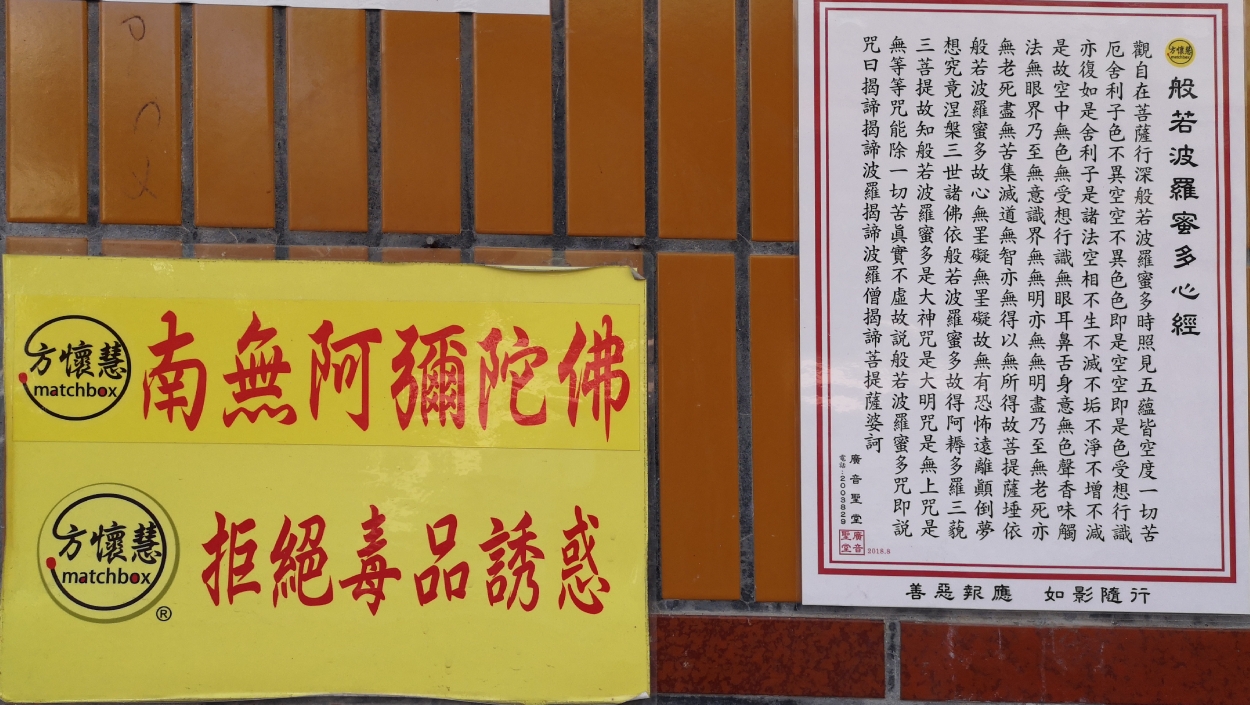 方懷慧
matchbox
南無阿彌陀佛
方懷慧
matchbox
®
拒絕毒品誘惑
方懷慧
matchbox
般若波羅蜜多心經
觀自在菩薩行深般若波羅蜜多時照見五蘊皆空度一切苦
厄舍利子色不異空空不異色色即是空空即是色受想行識
亦復如是舍利子是諸法空相不生不滅不垢不淨不增不減
是故空中無色無受想行識無眼耳鼻舌身意無色聲香味觸
法無眼界乃至無意識界無無明亦無無明盡乃至無老死亦
無老死盡無苦集滅道無智亦無得以無所得故菩提薩埵依
般若波羅蜜多故心無罣礙無罣礙故無有恐怖遠離顛倒夢
想究竟涅槃三世諸佛依般若波羅蜜多故得阿耨多羅三藐
三菩提故知般若波羅蜜多是大神咒是大明咒是無上咒是
無等等咒能除一切苦眞實不虛故説般若波羅蜜多咒即説
咒曰揭諦揭諦波羅揭諦波羅僧揭諦菩提薩婆訶
廣音聖堂
電話:2003829
廣音聖堂
2018.8
善惡報應 如影隨行